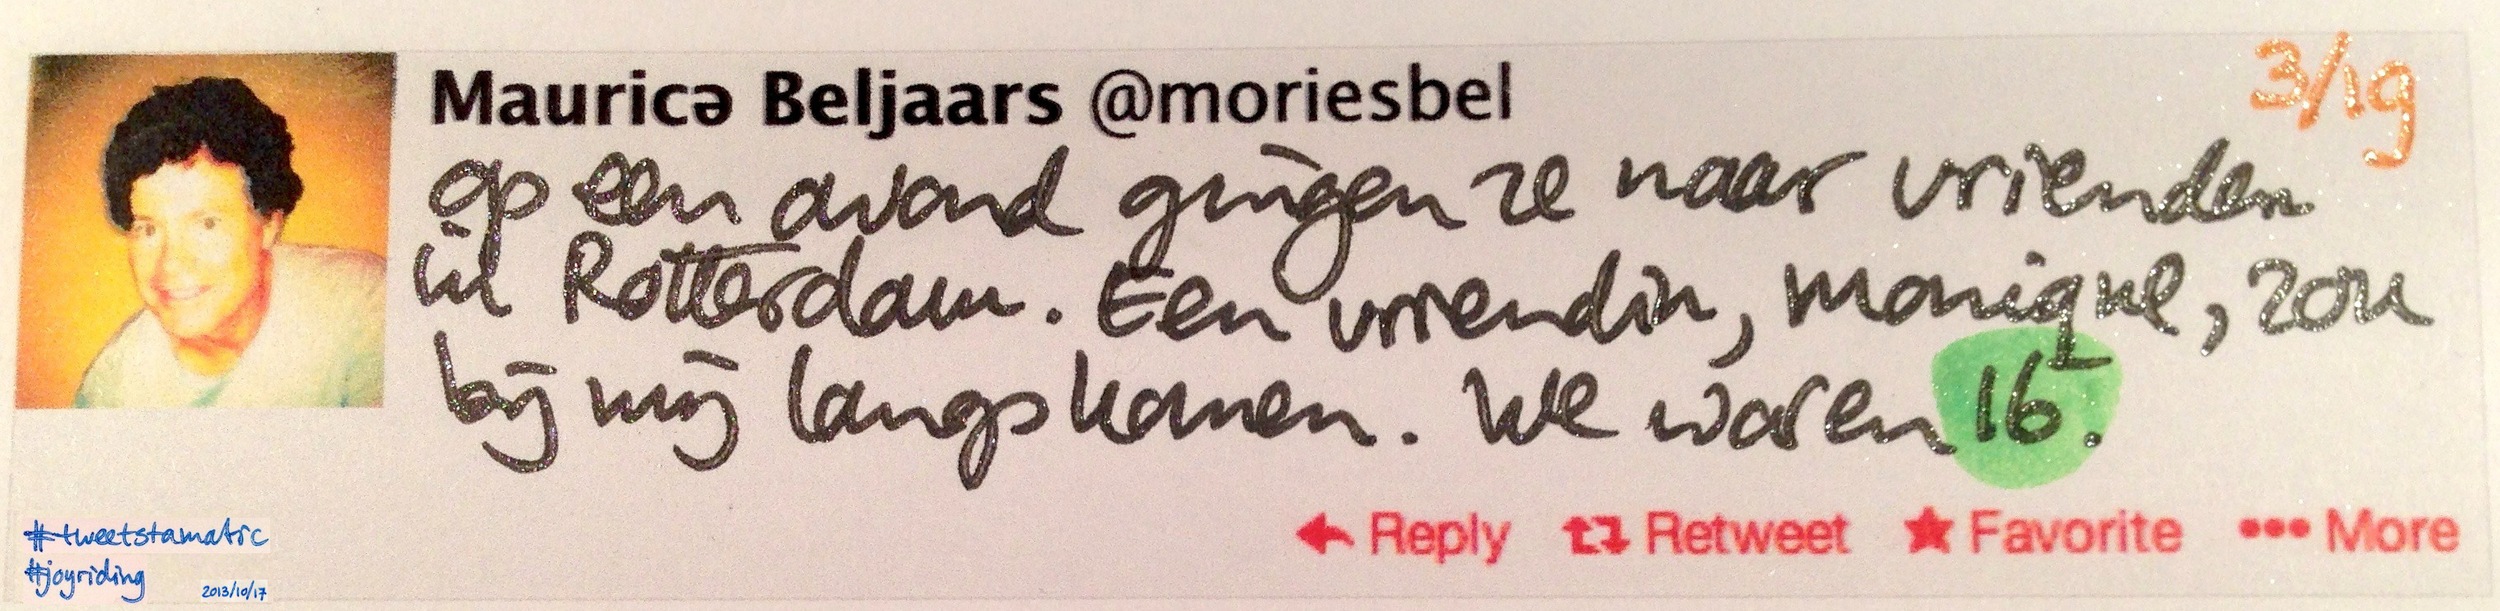 Mauricə Beljaars @moriesbel
3/19
op een avond gingen ze naar vrienden
in Rotterdam. Een vriendin, Monique, zou
bij mij langskomen. We waren 16.
Reply Retweet Favorite More
#tweetstamatic
#joyriding
2013/10/17